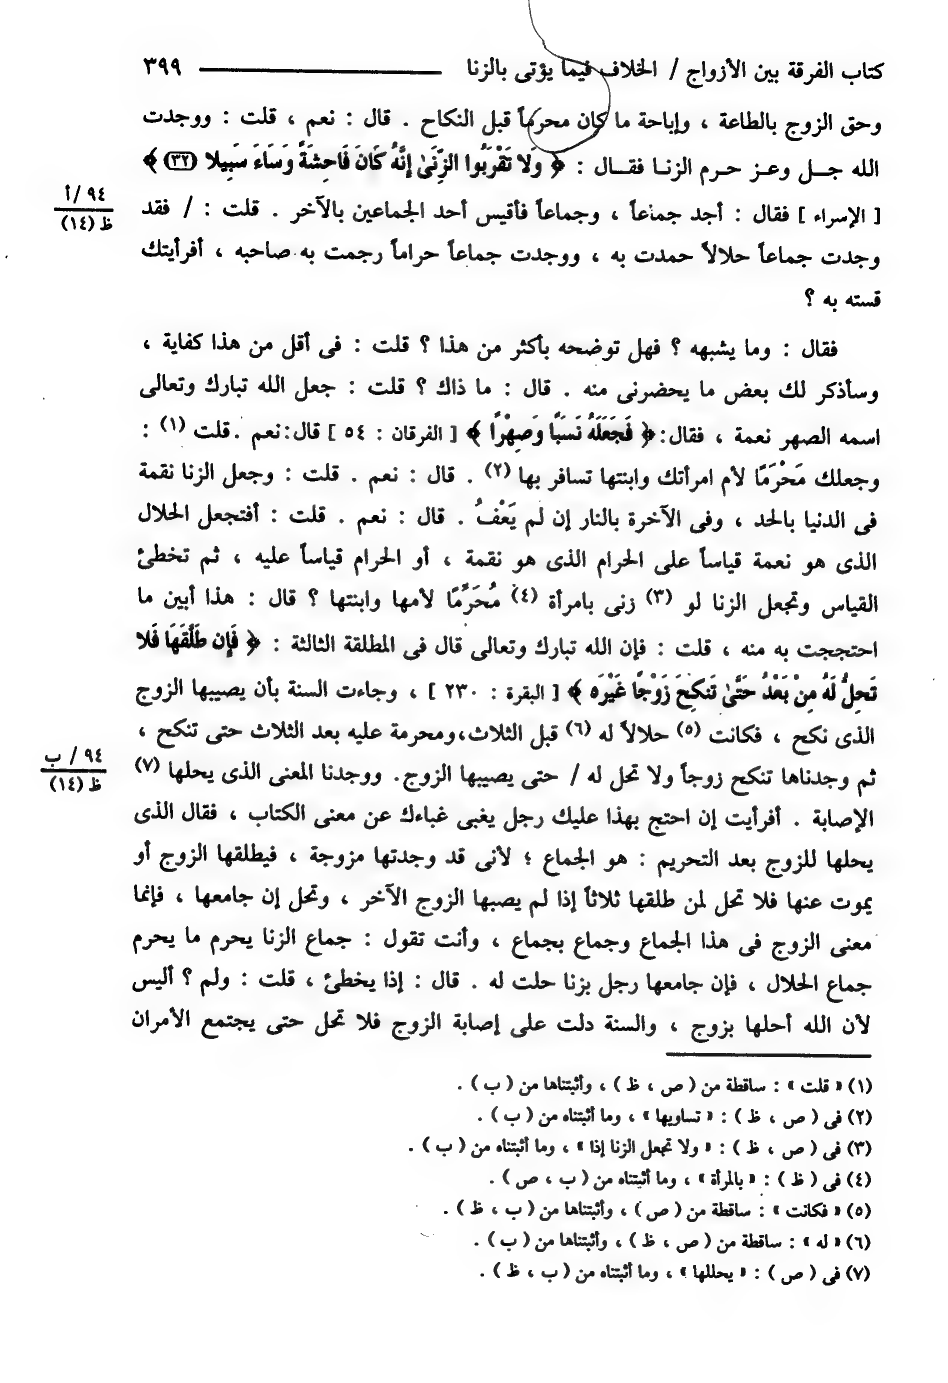 كتاب الفرقة بين الأزواج / الخلاف فيما يؤتى بالزنا ٣٩٩
وحق الزوج بالطاعة ، وإباحة ما كان محرماً قبل النكاح . قال : نعم ، قلت : ووجدت
الله جـل وعـز حـرم الزنـا فقـال : ﴿ وَلا تَقْرَبُوا الزِّنَىٰ إِنَّهُ كَانَ فَاحِشَةً وَسَاءَ سَبِيلا (٣٢) ﴾
[ الإسراء ] فقال : أجد جماعاً ، وجماعاً فأقيس أحد الجماعين بالآخر . قلت : / فقد
٩٤ / أ
ظ (١٤)
وجدت جماعاً حلالاً حمدت به ، ووجدت جماعاً حراماً رجمت به صاحبه ، أفرأيتك
قسته به ؟
فقال : وما يشبهه ؟ فهل توضحه بأكثر من هذا ؟ قلت : فى أقل من هذا كفاية ،
وسأذكر لك بعض ما يحضرنى منه . قال : ما ذاك ؟ قلت : جعل الله تبارك وتعالى
اسمه الصهر نعمة ، فقال: ﴿ فَجَعَلَهُ نَسَبًا وَصِهْرًا ﴾ [ الفرقان : ٥٤ ] قال: نعم .قلت (١) :
وجعلك مَحْرَمًا لأم امرأتك وابنتها تسافر بها (٢) . قال : نعم . قلت : وجعل الزنا نقمة
فى الدنيا بالحد ، وفى الآخرة بالنار إن لم يَعْفُ . قال : نعم . قلت : أفتجعل الحلال
الذى هو نعمة قياساً على الحرام الذى هو نقمة ، أو الحرام قياساً عليه ، ثم تخطئ
القياس وتجعل الزنا لو (٣) زنى بامرأة (٤) مُحَرِّمًا لأمها وابنتها ؟ قال : هذا أبين ما
احتججت به منه ، قلت : فإن الله تبارك وتعالى قال فى المطلقة الثالثة : ﴿ فَإِن طَلَّقَهَا فَلا
تَحِلُّ لَهُ مِنْ بَعْدُ حَتَّىٰ تَنكِحَ زَوْجًا غَيْرَه ﴾ [ البقرة : ٢٣٠ ] ، وجاءت السنة بأن يصيبها الزوج
الذى نكح ، فكانت (٥) حلالاً له (٦) قبل الثلاث،ومحرمة عليه بعد الثلاث حتى تنكح ،
٩٤ / ب
ظ (١٤)
ثم وجدناها تنكح زوجاً ولا تحل له / حتى يصيبها الزوج. ووجدنا المعنى الذى يحلها (٧)
الإصابة . أفرأيت إن احتج بهذا عليك رجل يغبى غباءك عن معنى الكتاب ، فقال الذى
يحلها للزوج بعد التحريم : هو الجماع ؛ لأنى قد وجدتها مزوجة ، فيطلقها الزوج أو
يموت عنها فلا تحل لمن طلقها ثلاثاً إذا لم يصبها الزوج الآخر ، وتحل إن جامعها ، فإنما
معنى الزوج فى هذا الجماع وجماع بجماع ، وأنت تقول : جماع الزنا يحرم ما يحرم
جماع الحلال ، فإن جامعها رجل بزنا حلت له . قال : إذا يخطئ ، قلت : ولم ؟ أليس
لأن الله أحلها بزوج ، والسنة دلت على إصابة الزوج فلا تحل حتى يجتمع الأمران
(١) « قلت » : ساقطة من ( ص ، ظ ) ، وأثبتناها من ( ب ) .
(٢) فى ( ص ، ظ ) : « تساويها » ، وما أثبتناه من ( ب ) .
(٣) فى ( ص ، ظ ) : « ولا تجعل الزنا إذا » ، وما أثبتناه من ( ب ) .
(٤) فى ( ظ ) : « بالمرأة » ، وما أثبتناه من ( ب ، ص ) .
(٥) « فكانت » : ساقطة من ( ص ) ، وأثبتناها من ( ب ، ظ ) .
(٦) « له » : ساقطة من ( ص ، ظ ) ، وأثبتناها من ( ب ) .
(٧) فى ( ص ) : « يحللها » ، وما أثبتناه من ( ب ، ظ ) .